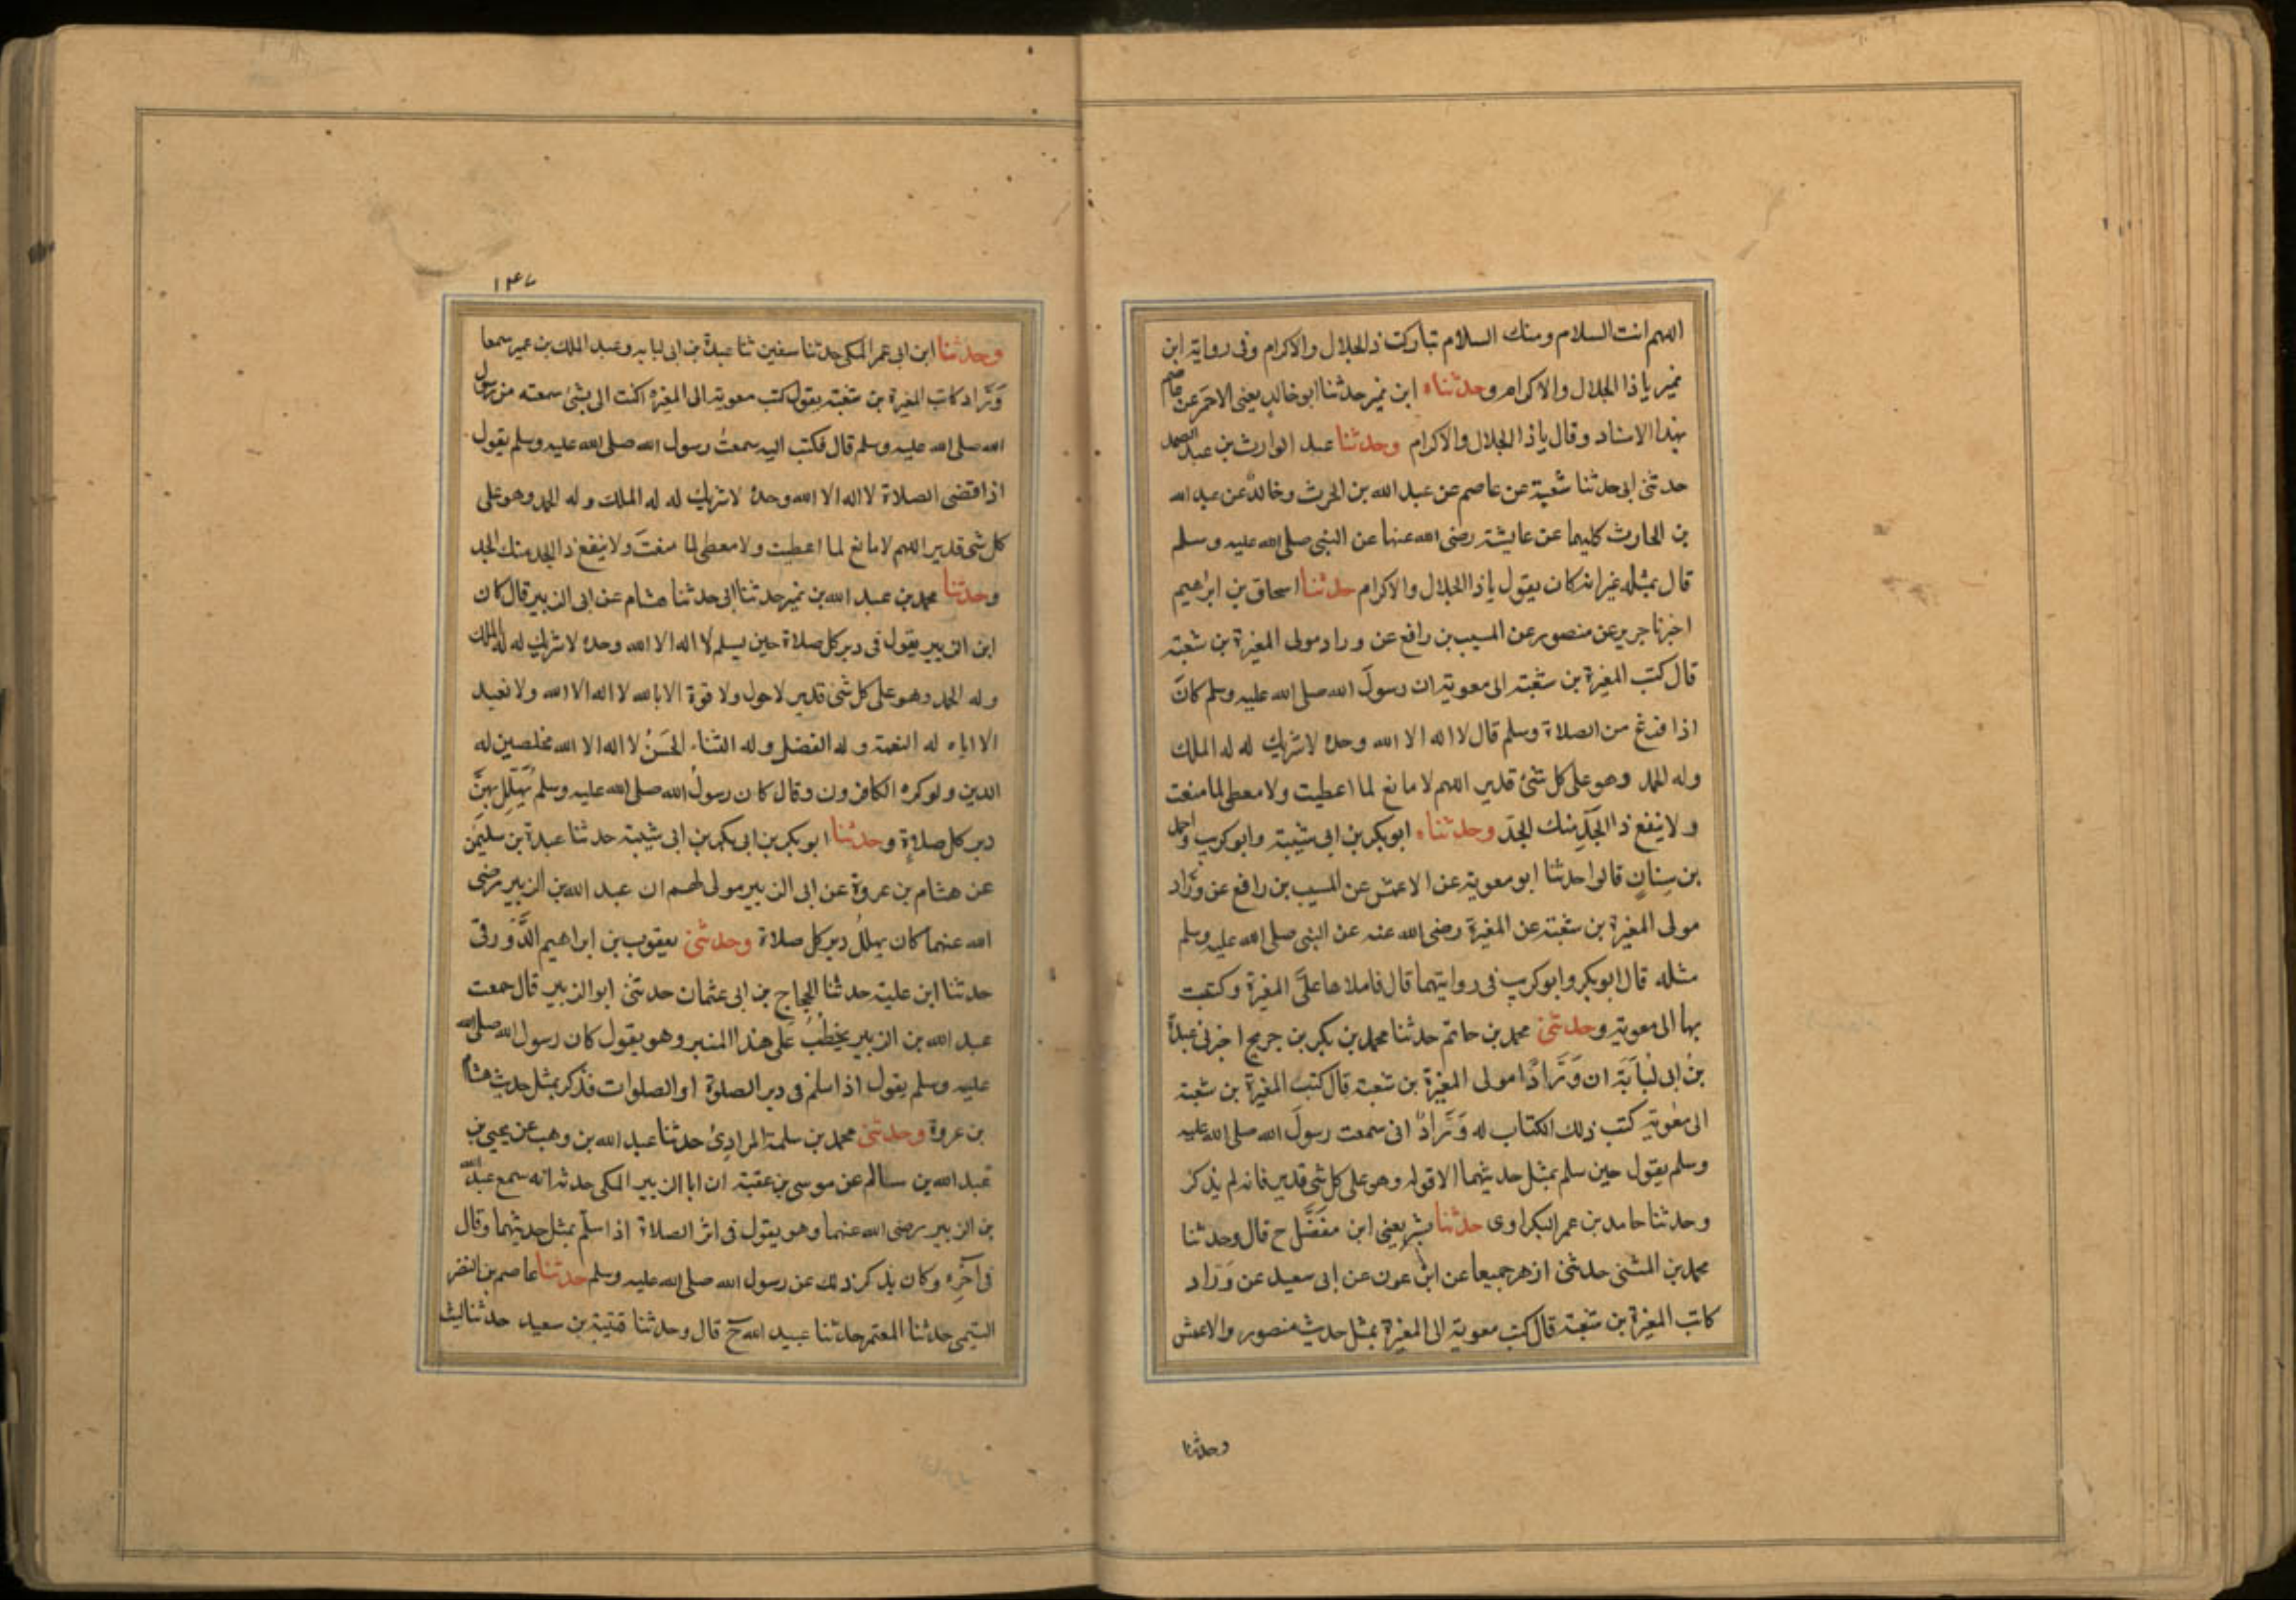 اللهم انت السلام ومنك السلام تباركت ذا الجلال والاكرام وفى رواية ابن
نمير يا ذا الجلال والاكرام وحدثناه ابن نمير حدثنا ابو خالد يعنى الاحمر عن عاصم
بهذا الاسناد وقال يا ذا الجلال والاكرام وحدثنا عبد الوارث بن عبد الصمد
حدثنى ابى حدثنا شعبة عن عاصم عن عبد الله بن الحرث وخالد عن عبد الله
بن الحارث كليهما عن عايشة رضى الله عنها عن النبى صلى الله عليه وسلم
قال بمثله غير انه كان يقول يا ذا الجلال والاكرام حدثنا اسحاق بن ابراهيم
اخبرنا جرير عن منصور عن المسيب بن رافع عن وراد مولى المغيرة بن شعبة
قال كتب المغيرة بن شعبة الى معوية ان رسولَ الله صلى الله عليه وسلم كانَ
اذا فرغ من الصلاة وسلم قال لا اله الا الله وحده لا شريك له له الملك
وله الحمد وهو على كل شئ قدير اللهم لا مانع لما اعطيت ولا معطى لما منعت
ولا ينفع ذا الجَدِّ منك الجدّ وحدثناه ابو بكر بن ابى شيبة وابو كريب واحمد
بن سِنانٍ قالوا حدثنا ابو معوية عن الاعمش عن المسيب بن رافع عن ورَّاد
مولى المغيرة بن شعبة عن المغيرة رضى الله عنه عن النبى صلى الله عليه وسلم
مثله قال ابو بكر وابو كريب فى روايتهما قال فاملاها علىَّ المغيرة وكتبت
بها الى معوية وحدثنى محمد بن حاتم حدثنا محمد بن بكر بن جريج اخبرنى عبدة
بنُ ابى لُبَابَة ان وَرَّادًا مولى المغيرة بن شعبة قال كتب المغيرة بن شعبة
الى معوية كتب ذلك الكتاب له وَرَّادٌ انى سمعت رسولَ الله صلى الله عليه
وسلم يقول حين سلم بمثل حديثهما الا قوله وهو على كل شئ قدير فانه لم يذكر
وحدثنا حامد بن عمر البكراوى حدثنا بشر يعنى ابن مفَضَّل ح قال وحدثنا
محمد بن المثنى حدثنى ازهر جميعا عن ابن عون عن ابى سعيد عن وَرَاد
كاتب المغيرة بن شعبة قال كتب معوية الى المغيرة بمثل حديث منصور والاعمش
وحدثنا
١٤٧
وحدثنا ابن ابى عمر المكى حدثنا سفين ثنا عبدة بن ابى لبابه وعبد الملك بن عمير سمعا
وَرَّاد كاتب المغيرة بن شعبة يقول كتب معوية الى المغيرة اكتب الى بشئ سمعته من رسول
الله صلى الله عليه وسلم قال فكتب اليه سمعتُ رسول الله صلى الله عليه وسلم يقول
اذا قضى الصلاة لا اله الا الله وحده لا شريك له له الملك وله الحمد وهو على
كل شئ قدير اللهم لا مانع لما اعطيت ولا معطى لما منعتَ ولا ينفع ذا الجد منك الجد
وحدثنا محمد بن عبد الله بن نمير حدثنا ابى حدثنا هشام عن ابى الزبير قال كان
ابن الزبير يقول فى دبر كل صلاة حين يسلم لا اله الا الله وحده لا شريك له له الملك
وله الحمد وهو على كل شئ قدير لا حول ولا قوة الا بالله لا اله الا الله ولا نعبد
الا اياه له النعمة وله الفضل وله الثناء الحَسَنُ لا اله الا الله مخلصين له
الدين ولو كره الكافرون وقال كان رسولُ الله صلى الله عليه وسلم يُهَلِّلُ بهنَّ
دبر كل صلاةٍ وحدثنا ابو بكر بن ابى بكر بن ابى شيبة حدثنا عبدة بن سليمن
عن هشام بن عروة عن ابى الزبير مولى لهم ان عبد الله بن الزبير رضى
الله عنهما كان يهللُ دبر كل صلاة وحدثنى يعقوب بن ابراهيم الدَّوْرقى
حدثنا ابن علية حدثنا الحجاج بن ابى عثمان حدثنى ابو الزبير قال سمعت
عبد الله بن الزبير يخطُبُ على هذا المنبر وهو يقول كان رسول الله صلى الله
عليه وسلم يقول اذا سلم فى دبر الصلوة او الصلوات فذكر بمثل حديث هشام
بن عروة وحدثنى محمد بن سلمة المرادىُ حدثنا عبد الله بن وهب عن يحيى بن
عبد الله بن سالم عن موسى بن عقبة ان ابا الزبير المكى حدثه انه سمع عبد الله
بن الزبير رضى الله عنهما وهو يقول فى اثر الصلاة اذا سلّم بمثل حديثهما وقال
فى آخِرِه وكان يذكر ذلك عن رسول الله صلى الله عليه وسلم حدثنا عاصم بن النضر
التيمى حدثنا المعتمر حدثنا عبيد الله ح قال وحدثنا قتيبة بن سعيد حدثنا ليث